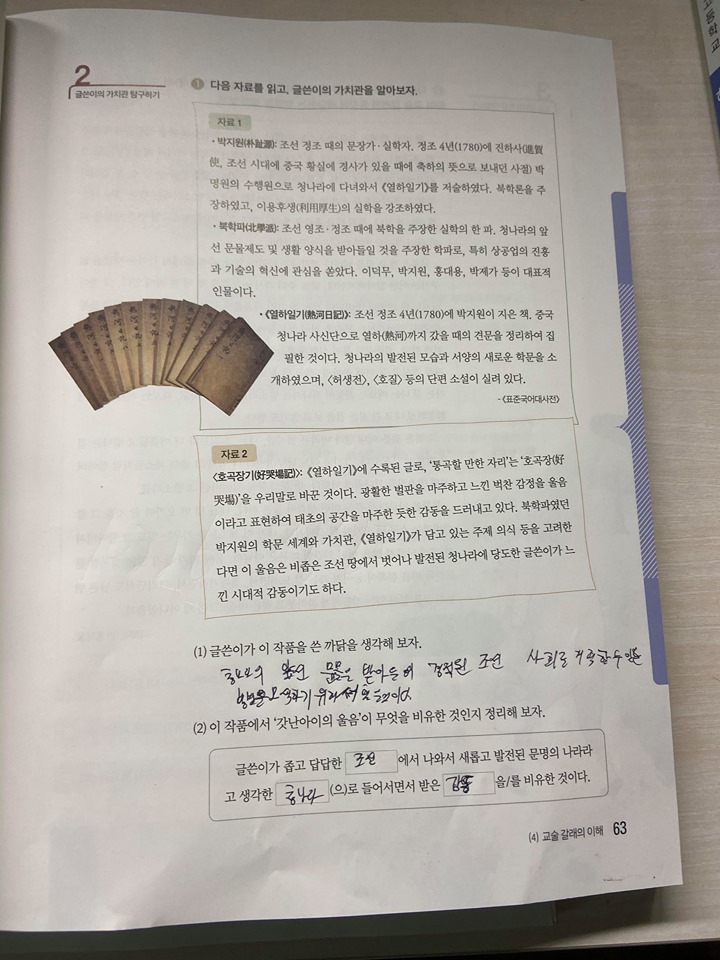 2
글쓴이의 가치관 탐구하기
1 다음 자료를 읽고, 글쓴이의 가치관을 알아보자.
자료 1
• 박지원(朴趾源): 조선 정조 때의 문장가·실학자. 정조 4년(1780)에 진하사(進賀
使, 조선 시대에 중국 황실에 경사가 있을 때에 축하의 뜻으로 보내던 사절) 박
명원의 수행원으로 청나라에 다녀와서 《열하일기》를 저술하였다. 북학론을 주
장하였고, 이용후생(利用厚生)의 실학을 강조하였다.
• 북학파(北學派): 조선 영조·정조 때에 북학을 주장한 실학의 한 파. 청나라의 앞
선 문물제도 및 생활 양식을 받아들일 것을 주장한 학파로, 특히 상공업의 진흥
과 기술의 혁신에 관심을 쏟았다. 이덕무, 박지원, 홍대용, 박제가 등이 대표적
인물이다.
• 《열하일기(熱河日記)》: 조선 정조 4년(1780)에 박지원이 지은 책. 중국
청나라 사신단으로 열하(熱河)까지 갔을 때의 견문을 정리하여 집
필한 것이다. 청나라의 발전된 모습과 서양의 새로운 학문을 소
개하였으며, 〈허생전〉, 〈호질〉 등의 단편 소설이 실려 있다.
- 《표준국어대사전》
자료 2
〈호곡장기(好哭場記)〉: 《열하일기》에 수록된 글로, '통곡할 만한 자리'는 '호곡장(好
哭場)'을 우리말로 바꾼 것이다. 광활한 벌판을 마주하고 느낀 벅찬 감정을 울음
이라고 표현하여 태초의 공간을 마주한 듯한 감동을 드러내고 있다. 북학파였던
박지원의 학문 세계와 가치관, 《열하일기》가 담고 있는 주제 의식 등을 고려한
다면 이 울음은 비좁은 조선 땅에서 벗어나 발전된 청나라에 당도한 글쓴이가 느
낀 시대적 감동이기도 하다.
(1) 글쓴이가 이 작품을 쓴 까닭을 생각해 보자.
청나라의 앞선 문물을 받아들여 경직된 조선 사회를 개혁할 수 있는
(2) 이 작품에서 '갓난아이의 울음'이 무엇을 비유한 것인지 정리해 보자.
글쓴이가 좁고 답답한 조선 에서 나와서 새롭고 발전된 문명의 나라라
고 생각한 청나라 (으)로 들어서면서 받은 감동 을/를 비유한 것이다.
(4) 교술 갈래의 이해 63